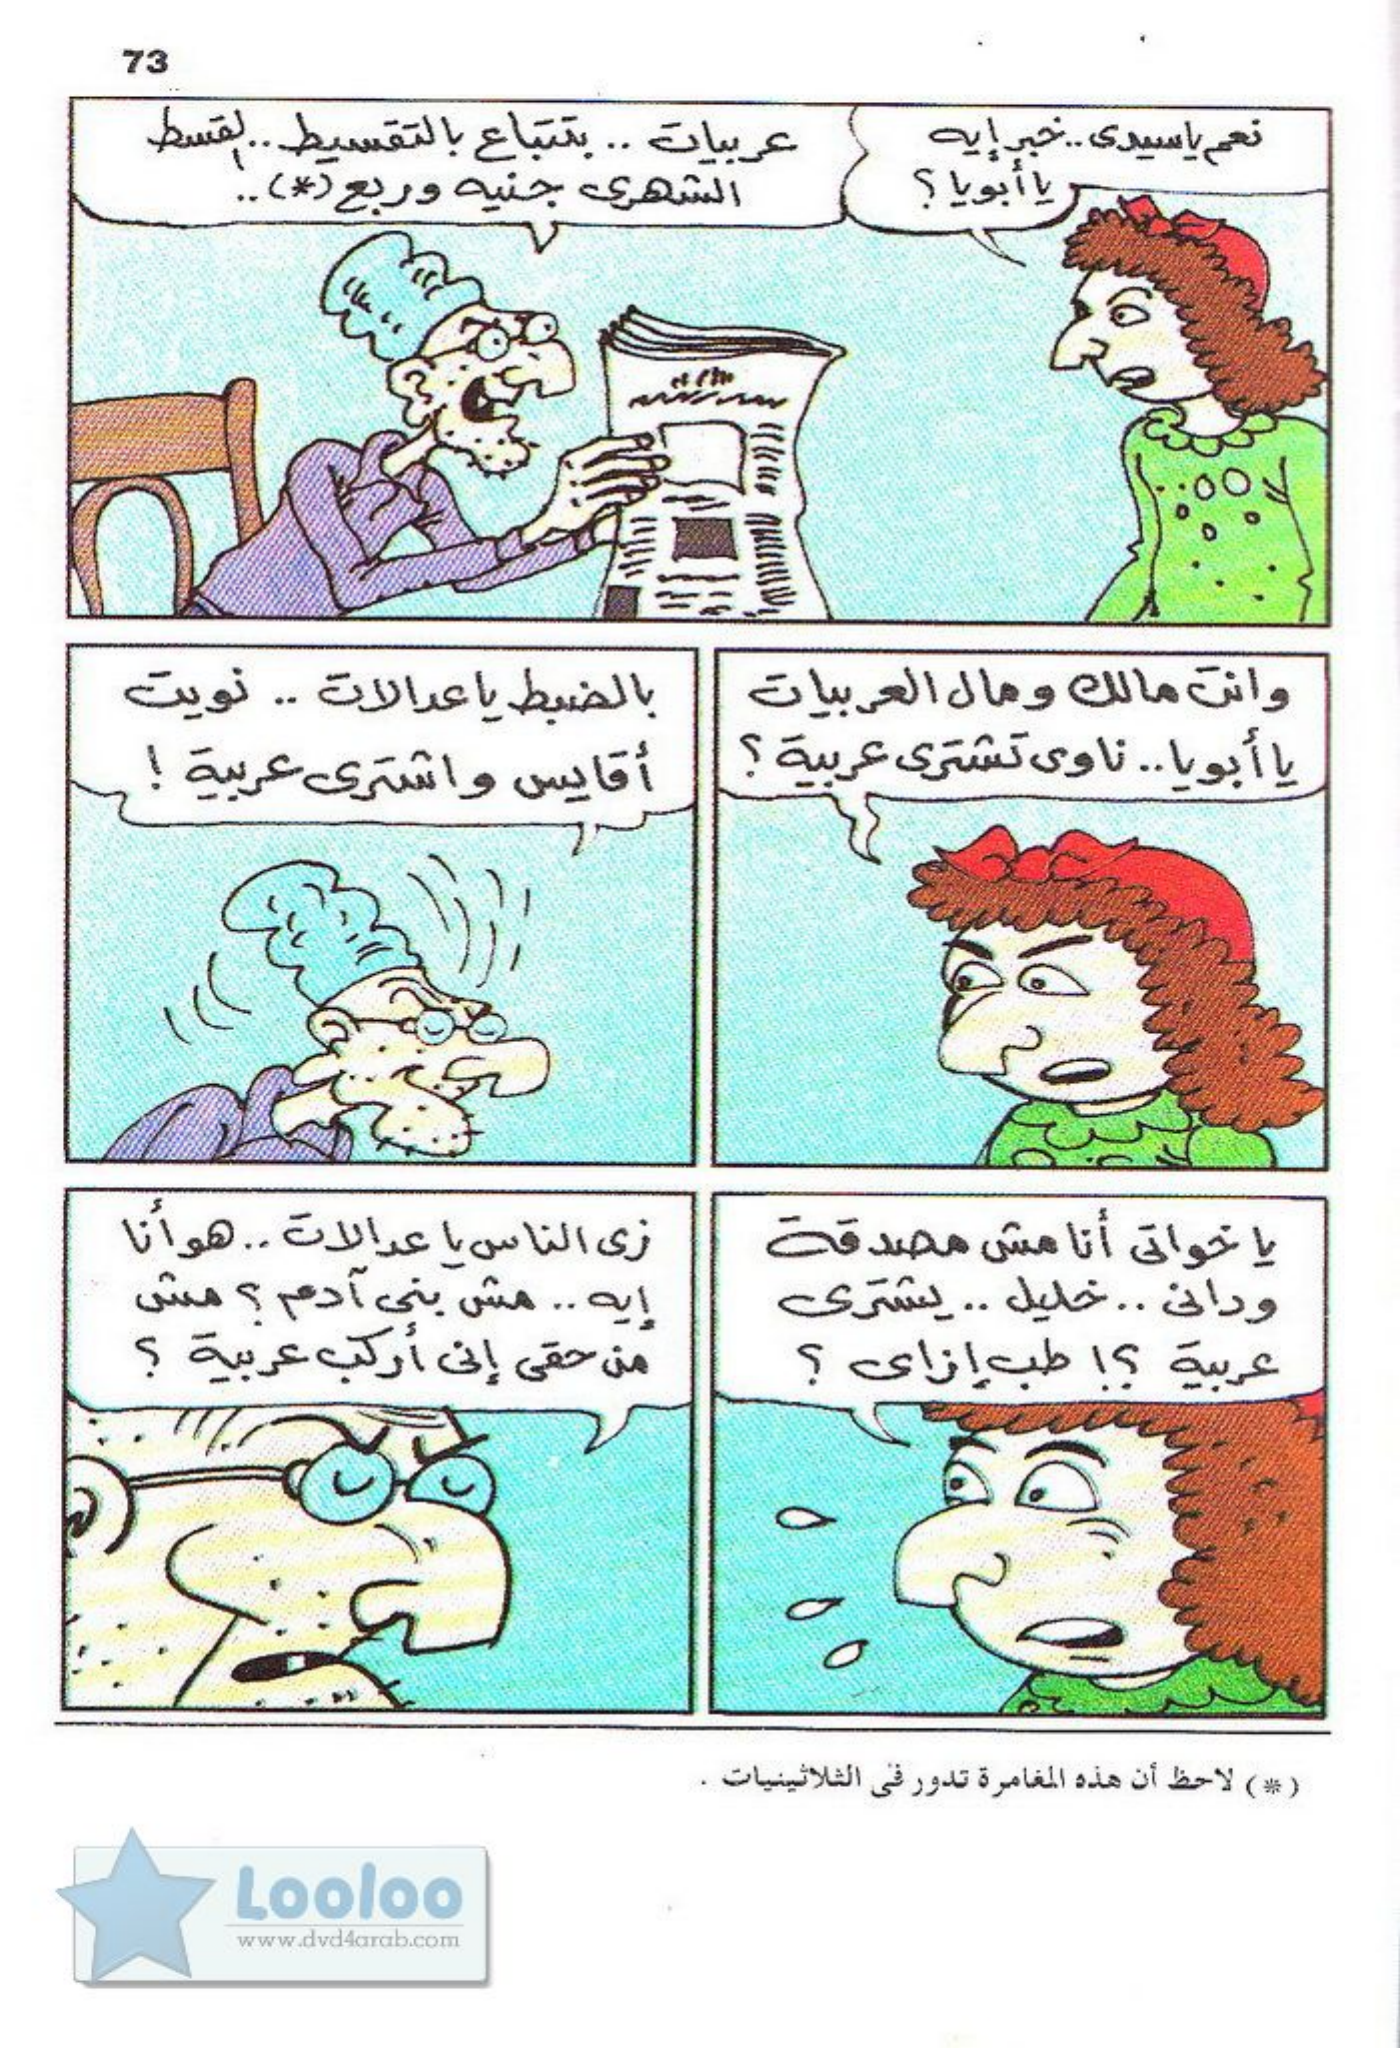 73
نعم ياسيدى..خبر إيه
يا أبويا ؟
عربيات .. بتتباع بالتقسيط ..القسط
الشهرى جنيه وربع (*)..
وانت مالك ومال العربيات
يا أبويا.. ناوى تشترى عربية ؟
بالضبط يا عدالات .. نويت
أقايس واشترى عربية !
يا خواتى أنا مش مصدقة
ودانى .. خليل .. يشترى
عربية ؟! طب إزاى ؟
زى الناس يا عدالات ..هو أنا
إيه .. مش بنى آدم ؟ مش
من حقى إنى أركب عربية ؟
(*) لاحظ أن هذه المغامرة تدور فى الثلاثينيات .
Looloo
www.dvd4arab.com